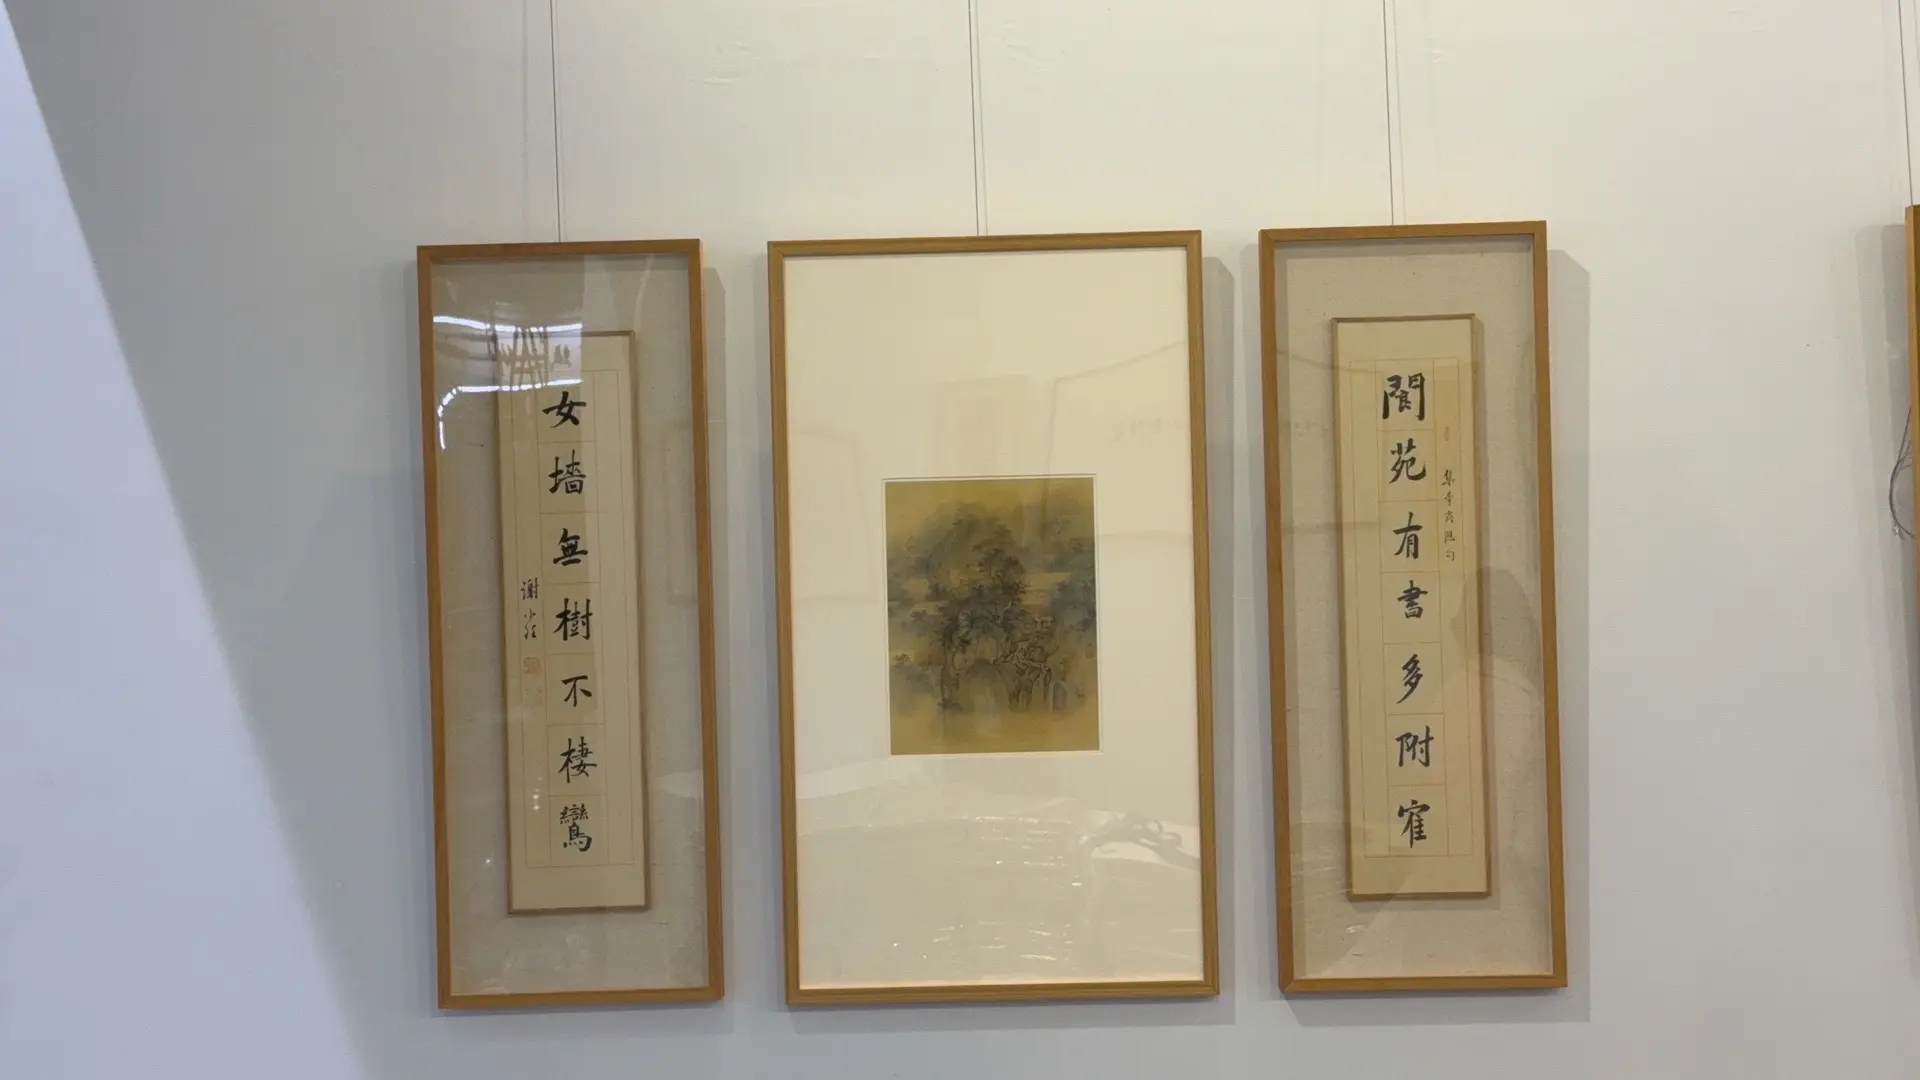 閬苑有書多附寉
集李商隱句
女墻無樹不棲鸞
謝小